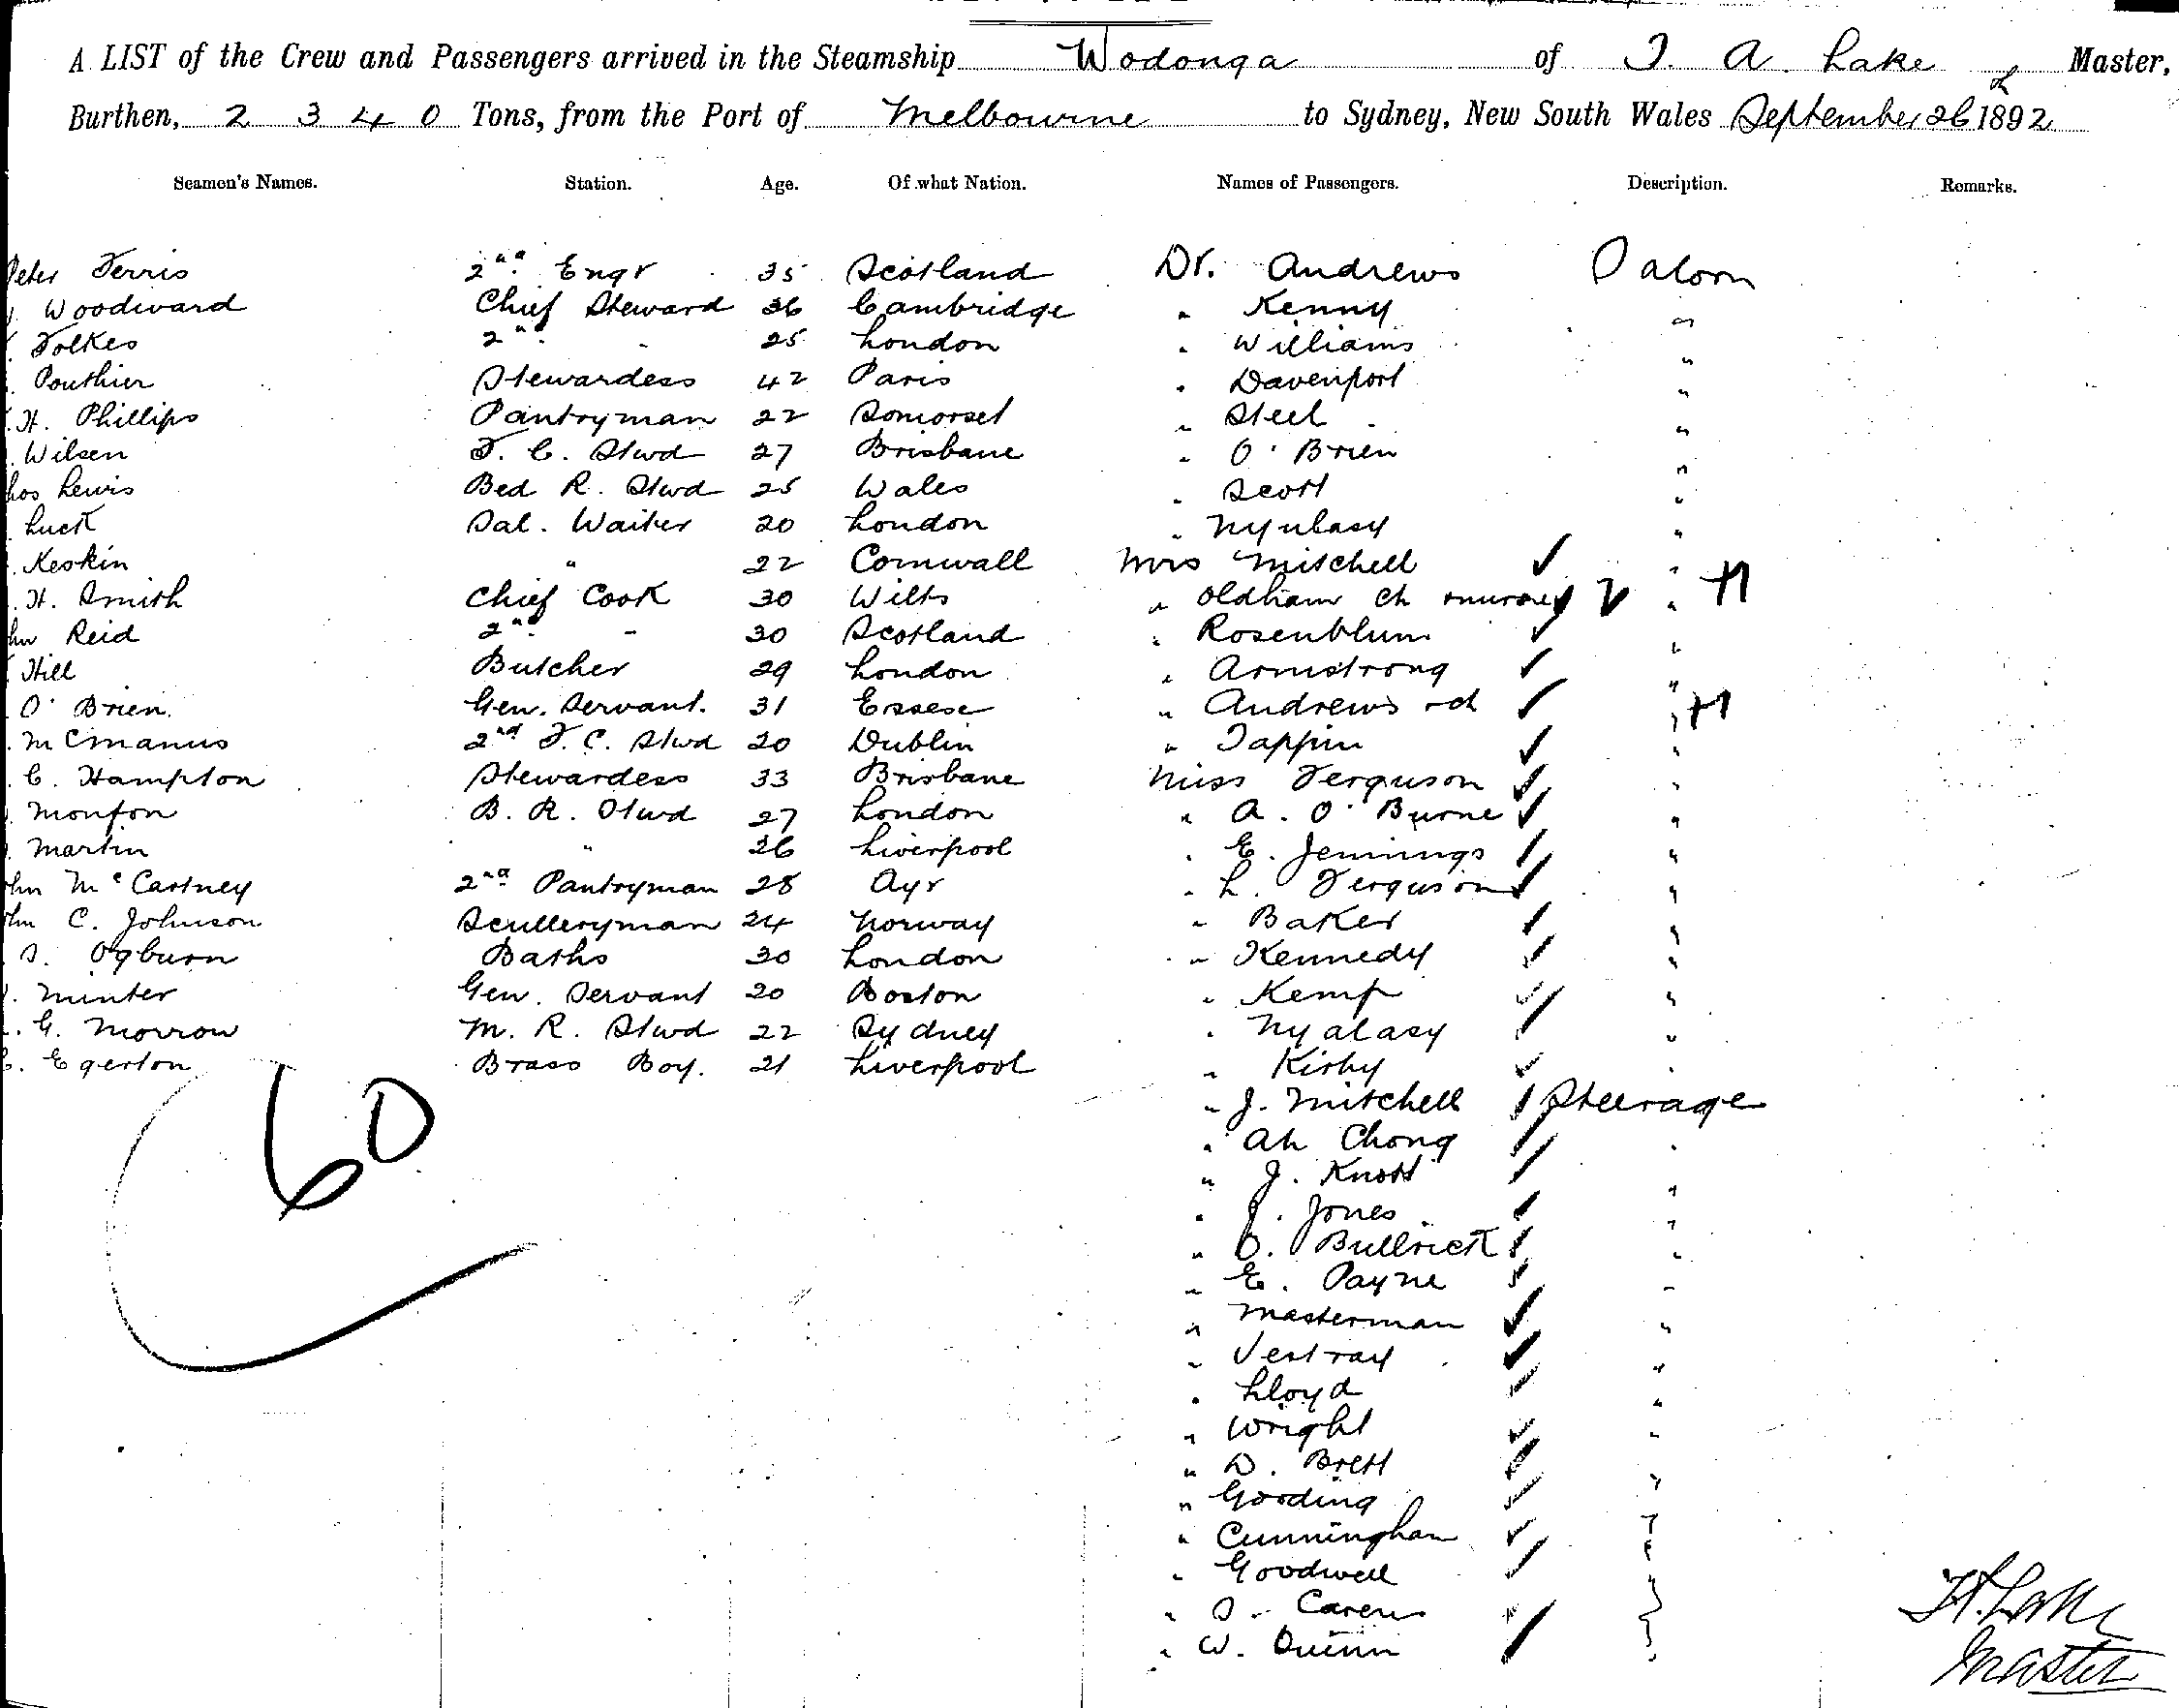 A LIST of the Crew and Passengers arrived in the Steamship Wodonga of T. A. Lake Master,
Burthen, 2340 Tons, from the Port of Melbourne to Sydney, New South Wales September 26th 1892
Seamen's Names. Station. Age. Of what Nation. Names of Passengers. Description. Remarks.
Peter Ferris 2nd Engr 35 Scotland Dr. Andrews Saloon
Woodward Chief Steward 36 Cambridge " Kenny "
Folkes 2nd " 25 London " Williams "
Pouthier Stewardess 42 Paris " Davenport "
H. Phillips Pantryman 22 Somerset " Steel "
Wilsen F. C. Stwd 27 Brisbane " O'Brien "
hos Lewis Bed R. Stwd 25 Wales " Scott "
Luck Sal. Waiter 20 London " Nyulasy "
Keskin " 22 Cornwall Mrs Mitchell "
H. Smith Chief Cook 30 Wilts " Oldham ch "
hn Reid 2nd " 30 Scotland " Rosenblum "
Hill Butcher 29 London " Armstrong "
O'Brien Gen. Servant. 31 Essex " Andrews ch "
McManus 2nd F. C. Stwd 20 Dublin " Tappin "
C. Hampton Stewardess 33 Brisbane Miss Ferguson "
Monfon B. R. Stwd 27 London " A. O'Burne "
Martin " 26 Liverpool " E. Jennings "
ohn McCartney 2nd Pantryman 28 Ayr " L. Ferguson "
ohn C. Johnson Sculleryman 24 Norway " Baker "
S. Ogburn Baths 30 London " Kennedy "
Minter Gen. Servant 20 Boston " Kemp "
G. Morrow M. R. Stwd 22 Sydney " Nyalasy "
Egerton Brass Boy. 21 Liverpool " Kirby "
" J. Mitchell Steerage
60 " Ah Chong "
" J. Knott "
" J. Jones "
" O. Bullrick "
" E. Payne "
" Masterman "
" Vestray "
" Lloyd "
" Wright "
" D. Brett "
" Gooding "
" Cunningham "
" Goodwell "
" S. Carew
" W. Quinn
Lake
Master